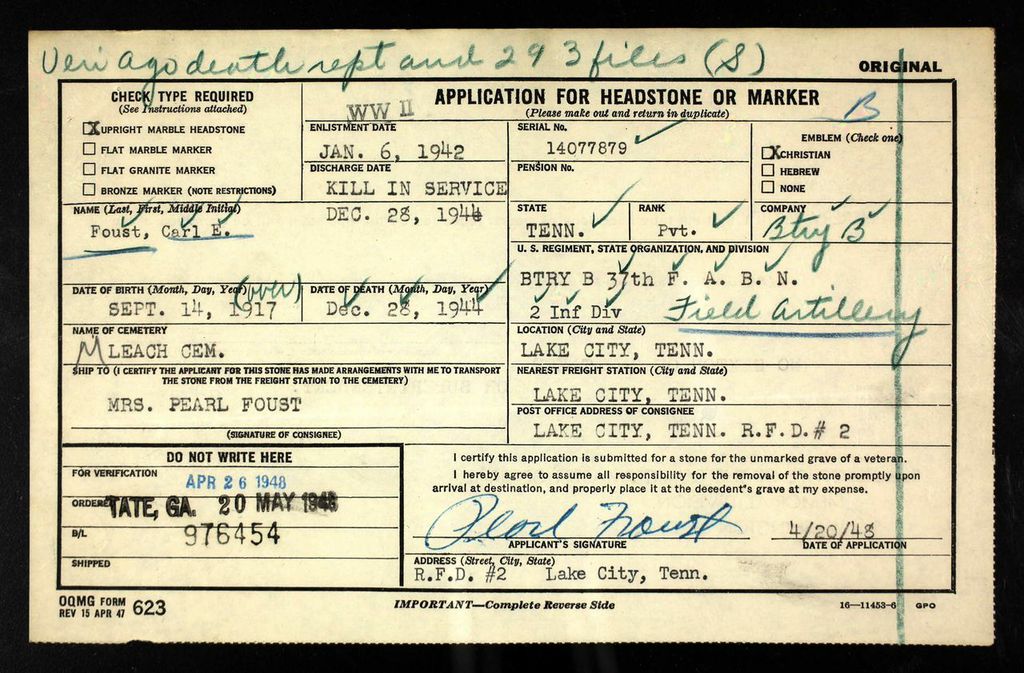 Veri Ago death rept and 293 files (S)
ORIGINAL
CHECK TYPE REQUIRED
(See Instructions attached)
X UPRIGHT MARBLE HEADSTONE
FLAT MARBLE MARKER
FLAT GRANITE MARKER
BRONZE MARKER (NOTE RESTRICTIONS)
WW II
APPLICATION FOR HEADSTONE OR MARKER
(Please make out and return in duplicate)
B
ENLISTMENT DATE
JAN. 6, 1942
DISCHARGE DATE
KILL IN SERVICE
DEC. 28, 1944
SERIAL No.
14077879
PENSION No.
EMBLEM (Check one)
X CHRISTIAN
HEBREW
NONE
NAME (Last, First, Middle Initial)
Foust, Carl E.
STATE
TENN.
RANK
Pvt.
COMPANY
Btry B
U. S. REGIMENT, STATE ORGANIZATION, AND DIVISION
BTRY B 37th F. A. B. N.
2 Inf Div Field Artillery
DATE OF BIRTH (Month, Day, Year)
(over)
SEPT. 14, 1917
DATE OF DEATH (Month, Day, Year)
Dec. 28, 1944
NAME OF CEMETERY
M LEACH CEM.
LOCATION (City and State)
LAKE CITY, TENN.
SHIP TO (I CERTIFY THE APPLICANT FOR THIS STONE HAS MADE ARRANGEMENTS WITH ME TO TRANSPORT
THE STONE FROM THE FREIGHT STATION TO THE CEMETERY)
MRS. PEARL FOUST
(SIGNATURE OF CONSIGNEE)
NEAREST FREIGHT STATION (City and State)
LAKE CITY, TENN.
POST OFFICE ADDRESS OF CONSIGNEE
LAKE CITY, TENN. R.F.D.# 2
DO NOT WRITE HERE
FOR VERIFICATION
APR 26 1948
ORDERED
TATE, GA. 20 MAY 1948
B/L
976454
SHIPPED
I certify this application is submitted for a stone for the unmarked grave of a veteran.
I hereby agree to assume all responsibility for the removal of the stone promptly upon
arrival at destination, and properly place it at the decedent's grave at my expense.
Pearl Foust
APPLICANT'S SIGNATURE
4/20/48
DATE OF APPLICATION
ADDRESS (Street, City, State)
R.F.D. #2 Lake City, Tenn.
OQMG FORM
REV 15 APR 47 623
IMPORTANT—Complete Reverse Side
16—11453-6 GPO